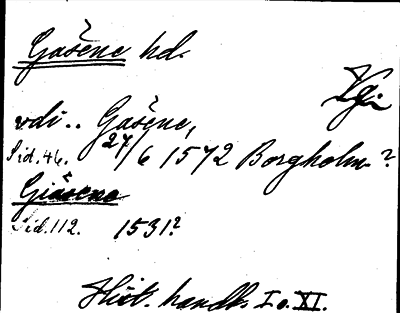 Gasene hd.
Vgi
vdi.. Gasene,
Sid. 46. 27/6 1572 Borgholm.?
Giasene
Sid. 112. 1531?
Hist. handl. I o. XI.